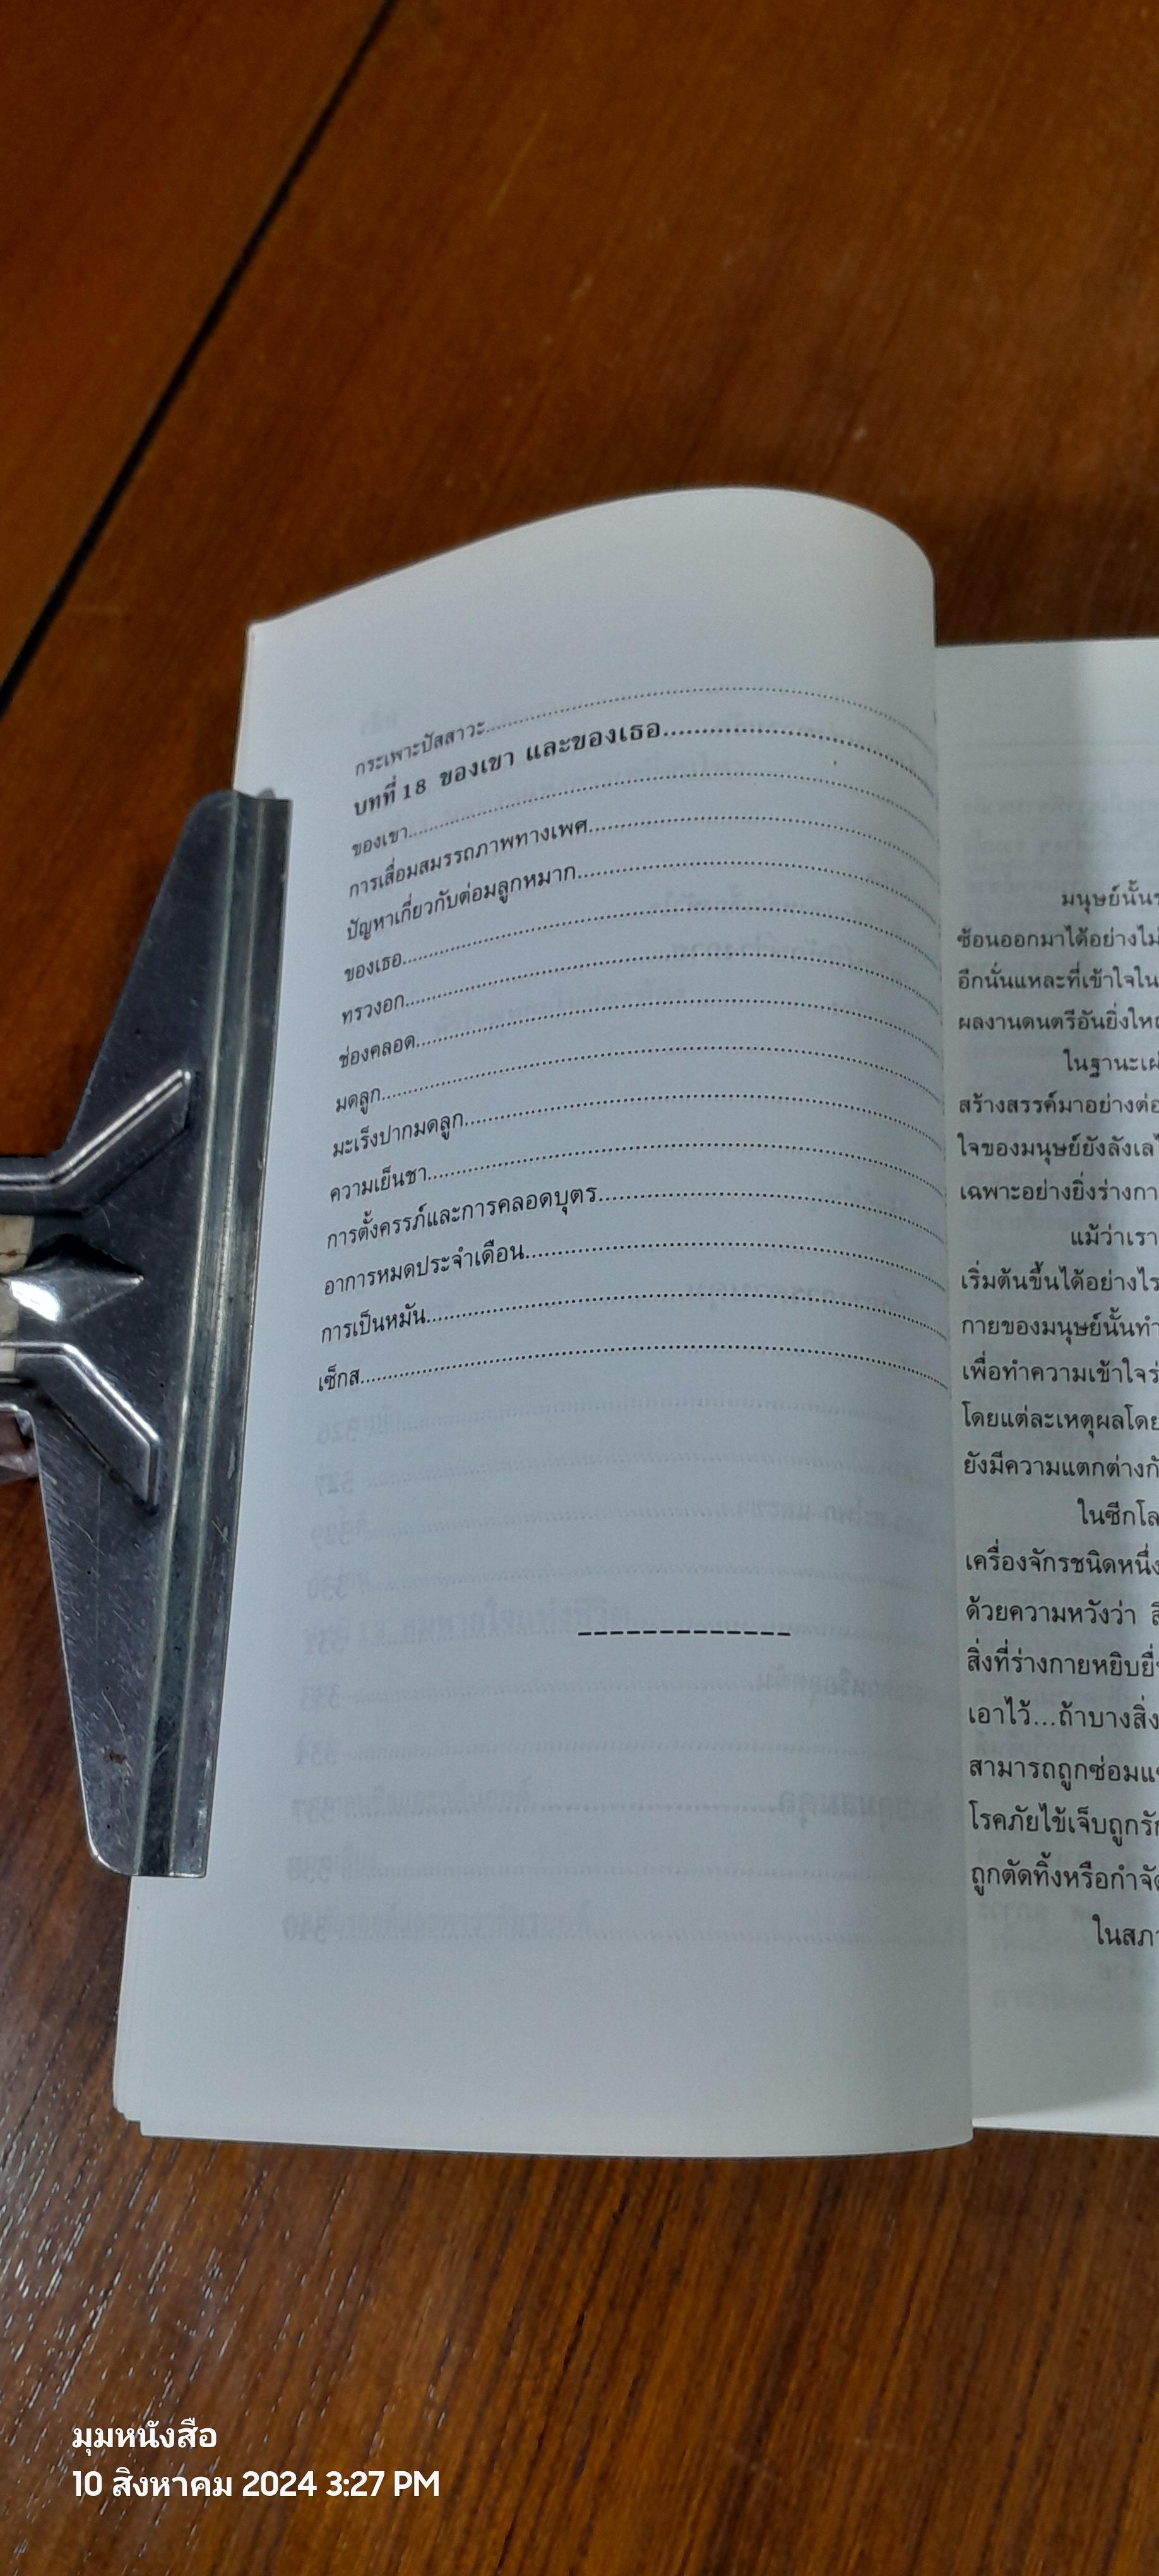 กระเพาะปัสสาวะ
บทที่ 18 ของเขา และของเธอ
ของเขา
การเสื่อมสมรรถภาพทางเพศ
ปัญหาเกี่ยวกับต่อมลูกหมาก
ของเธอ
ทรวงอก
ช่องคลอด
มดลูก
มะเร็งปากมดลูก
ความเย็นชา
การตั้งครรภ์และการคลอดบุตร
อาการหมดประจำเดือน
การเป็นหมัน
เซ็กส์
มนุษย์นั้น
ซ้อนออกมาได้อย่างไม่
อีกนั่นแหละที่เข้าใจใน
ผลงานดนตรีอันยิ่งให
ในฐานะเผ่
สร้างสรรค์มาอย่างต่อ
ใจของมนุษย์ยังลังเล
เฉพาะอย่างยิ่งร่างกา
แม้ว่าเรา
เริ่มต้นขึ้นได้อย่างไร
กายของมนุษย์นั้นทำ
เพื่อทำความเข้าใจร่
โดยแต่ละเหตุผลโดย
ยังมีความแตกต่างกั
ในซีกโล
เครื่องจักรชนิดหนึ่ง
ด้วยความหวังว่า สิ
สิ่งที่ร่างกายหยิบยื่
เอาไว้...ถ้าบางสิ่ง
สามารถถูกซ่อมแ
โรคภัยไข้เจ็บถูกรั
ถูกตัดทิ้งหรือกำจั
ในสภา
มุมหนังสือ
10 สิงหาคม 2024 3:27 PM